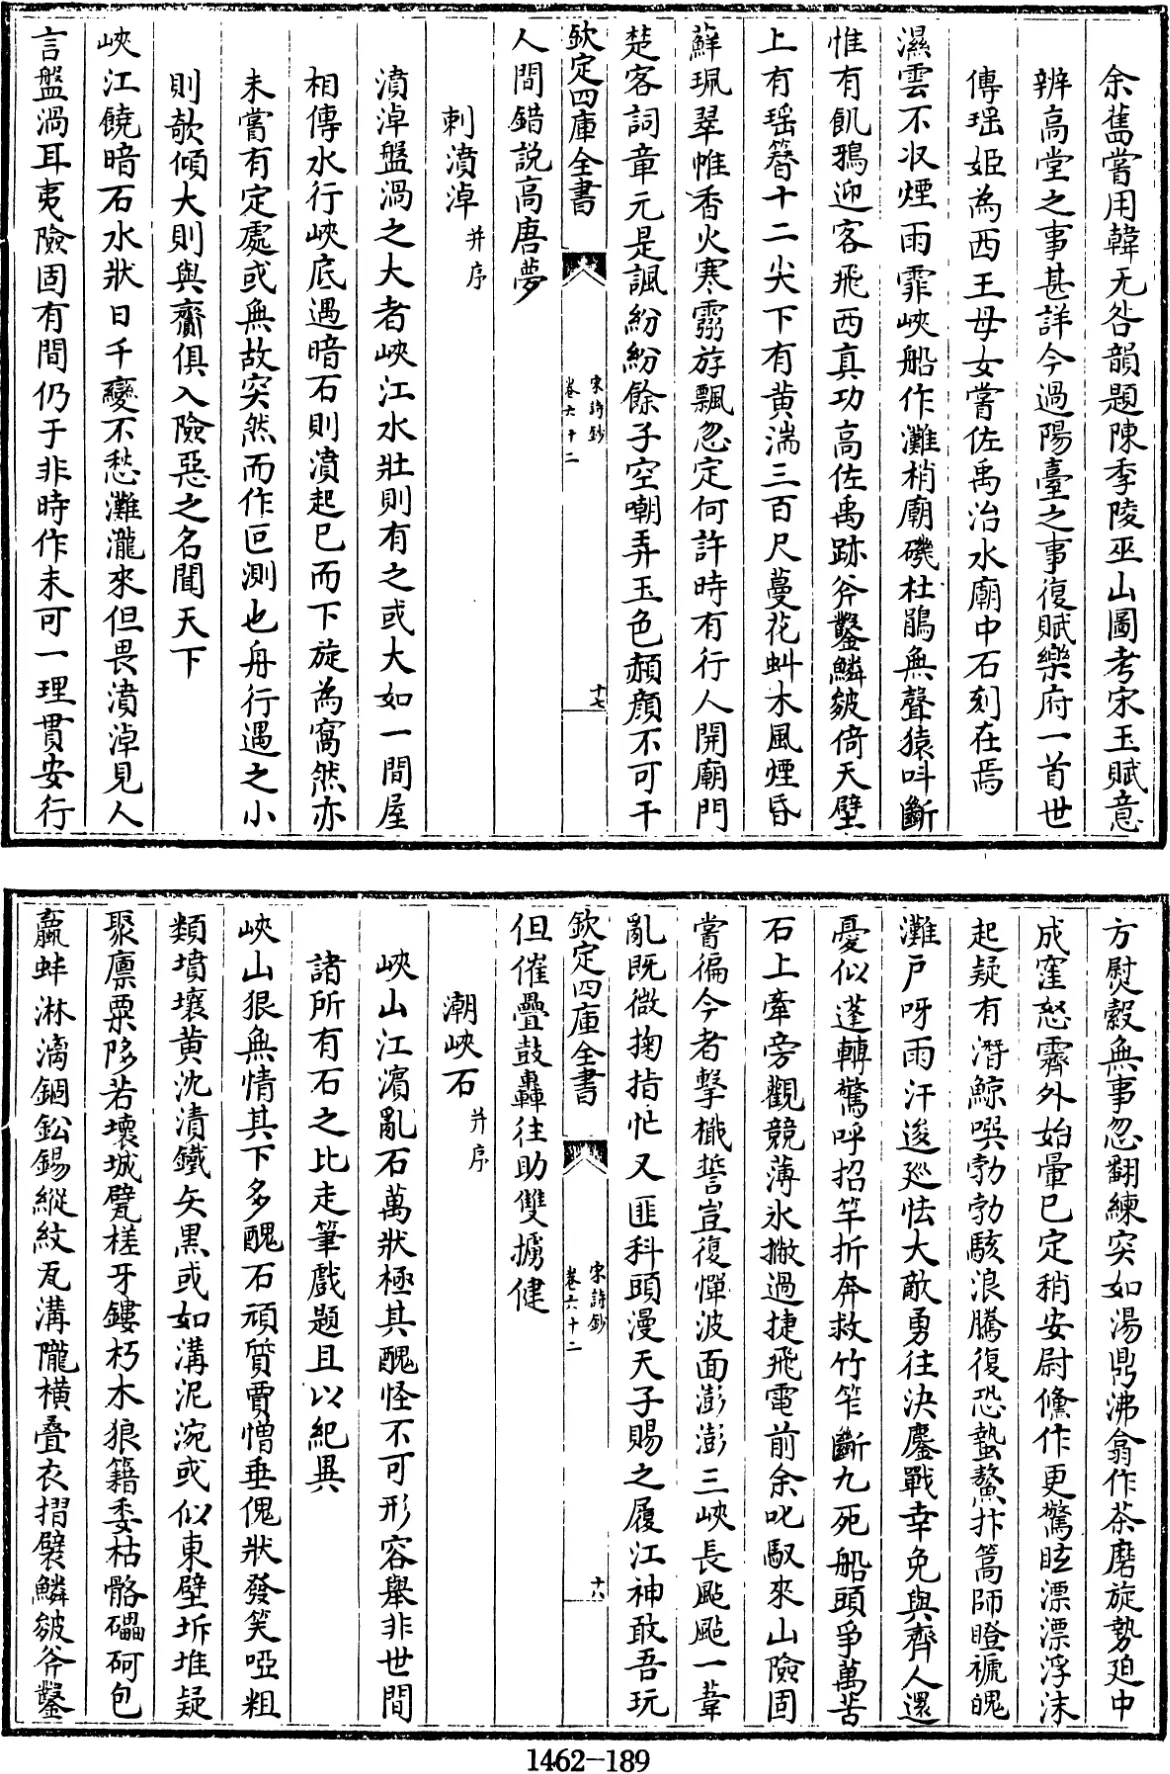 余舊嘗用韓无咎韻題陳季陵巫山圖考宋玉賦意
辨高堂之事甚詳今過陽臺之事復賦樂府一首世
傳瑶姬為西王母女嘗佐禹治水廟中石刻在焉
濕雲不收煙雨霏峽船作灘梢廟磯杜鵑無聲猿叫斷
惟有飢鴉迎客飛西真功高佐禹跡斧鑿鱗皴倚天壁
上有瑶簪十二尖下有黄湍三百尺蔓花虯木風煙昏
蘚珮翠帷香火寒靈斿飄忽定何許時有行人開廟門
楚客詞章元是諷紛紛餘子空嘲弄玉色頳顔不可干
欽定四庫全書
宋詩鈔
卷六十二
十七
人間錯説高唐夢
刺濆淖并序
濆淖盤渦之大者峽江水壯則有之或大如一間屋
相傳水行峽底遇暗石則濆起已而下旋為窩然亦
未嘗有定處或無故突然而作叵測也舟行遇之小
則欹傾大則與齎俱入險惡之名聞天下
峽江饒暗石水狀日千變不愁灘瀧來但畏濆淖見人
言盤渦耳夷險固有間仍于非時作未可一理貫安行
方熨縠無事忽翻練突如湯鼎沸翕作茶磨旋勢廹中
成窪怒霽外始暈已定稍安尉儵作更驚眩漂漂浮沫
起疑有潛鯨噀勃勃駭浪騰復恐蟄鰲抃篙師瞪褫魄
灘户呀雨汗逡廵怯大敵勇往决鏖戰幸免與齊人還
憂似蓬轉驚呼招竿折奔救竹笮斷九死船頭爭萬苦
石上牽旁觀競薄氷撇過捷飛電前余叱馭來山險固
嘗徧今者擊檝誓豈復憚波面澎澎三峽長颭颭一葦
亂既微掬指忙又匪科頭漫天子賜之履江神敢吾玩
欽定四庫全書
宋詩鈔
卷六十二
十八
但催疊鼓轟往助雙擄健
潮峽石并序
峽山江濵亂石萬狀極其醜怪不可形容舉非世間
諸所有石之比走筆戲題且以紀異
峽山狠無情其下多醜石頑質賈憎垂傀狀發笑啞粗
類墳壤黄沈漬鐵矢黒或如溝泥涴或似東壁坼堆疑
聚廪粟陊若壞城甓槎牙鏤朽木狼籍委枯骼礧砢包
蠃蚌淋漓錮鈆錫縱紋瓦溝隴横疊衣摺襞鱗皴斧鑿
1462-189